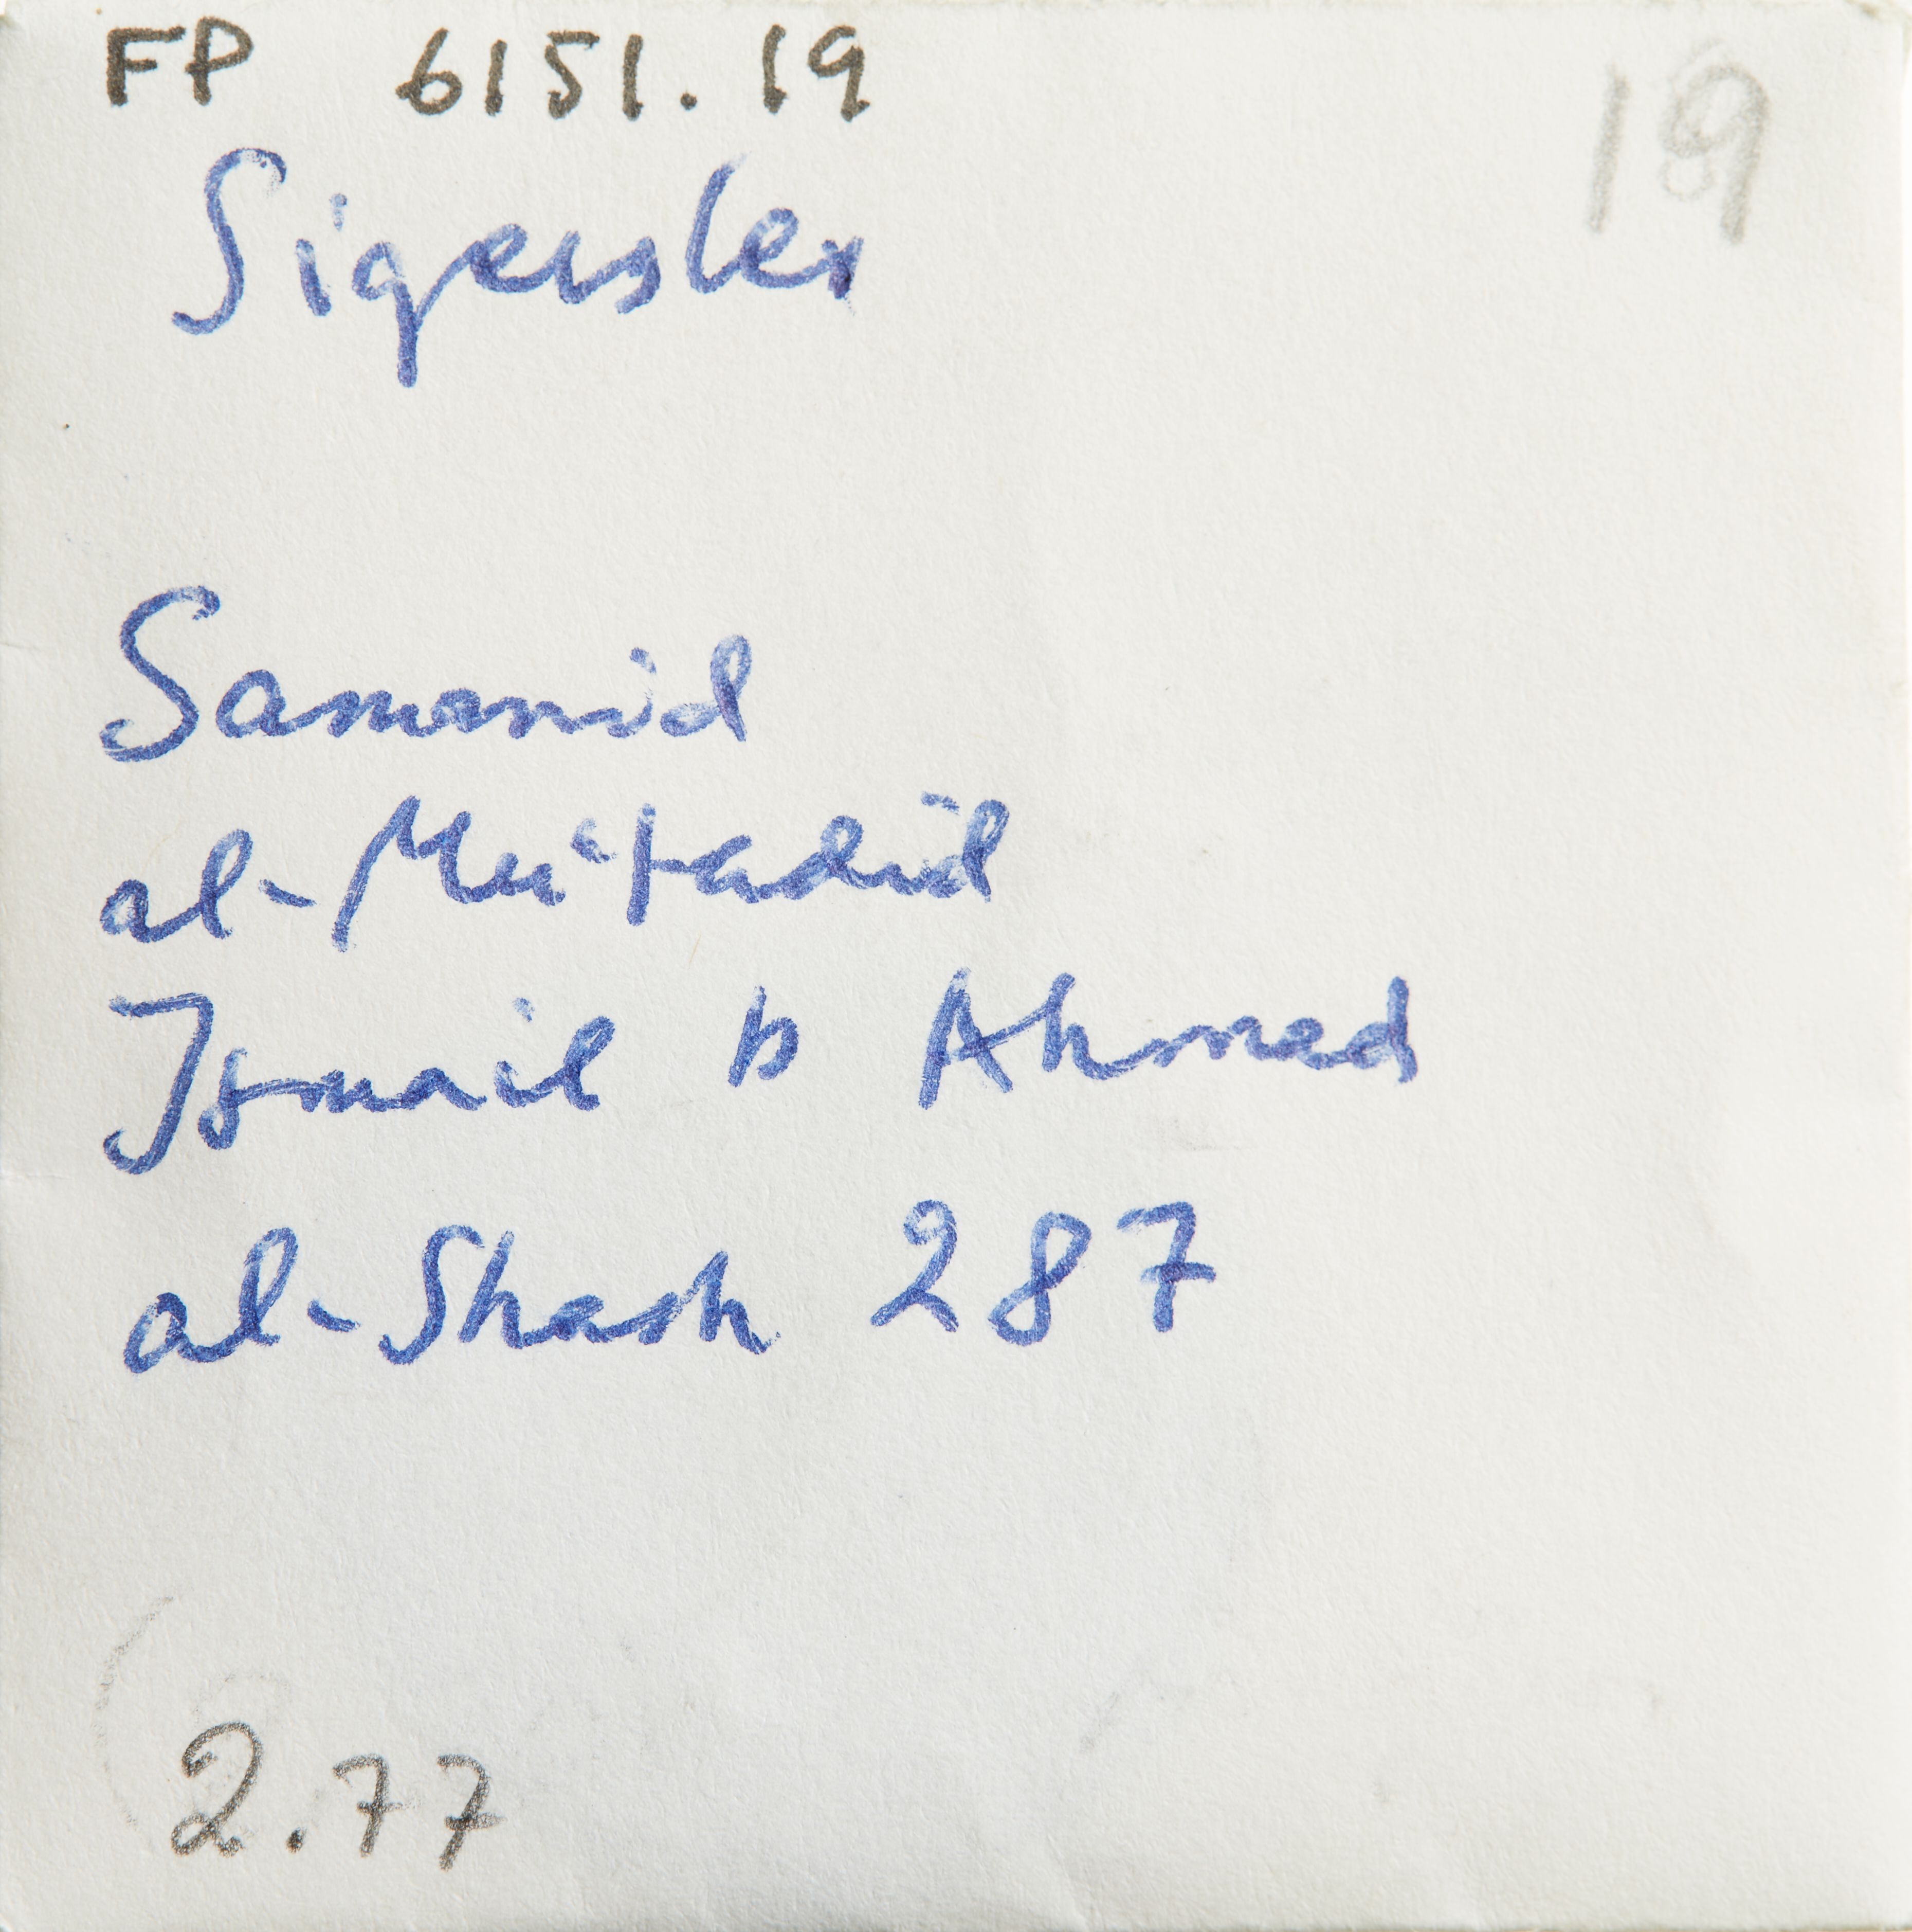 FP 6151.19
19
Sigerslev
Samanid
al-Mu'tadid
Ismail b Ahmad
al-Shash 287
2.77